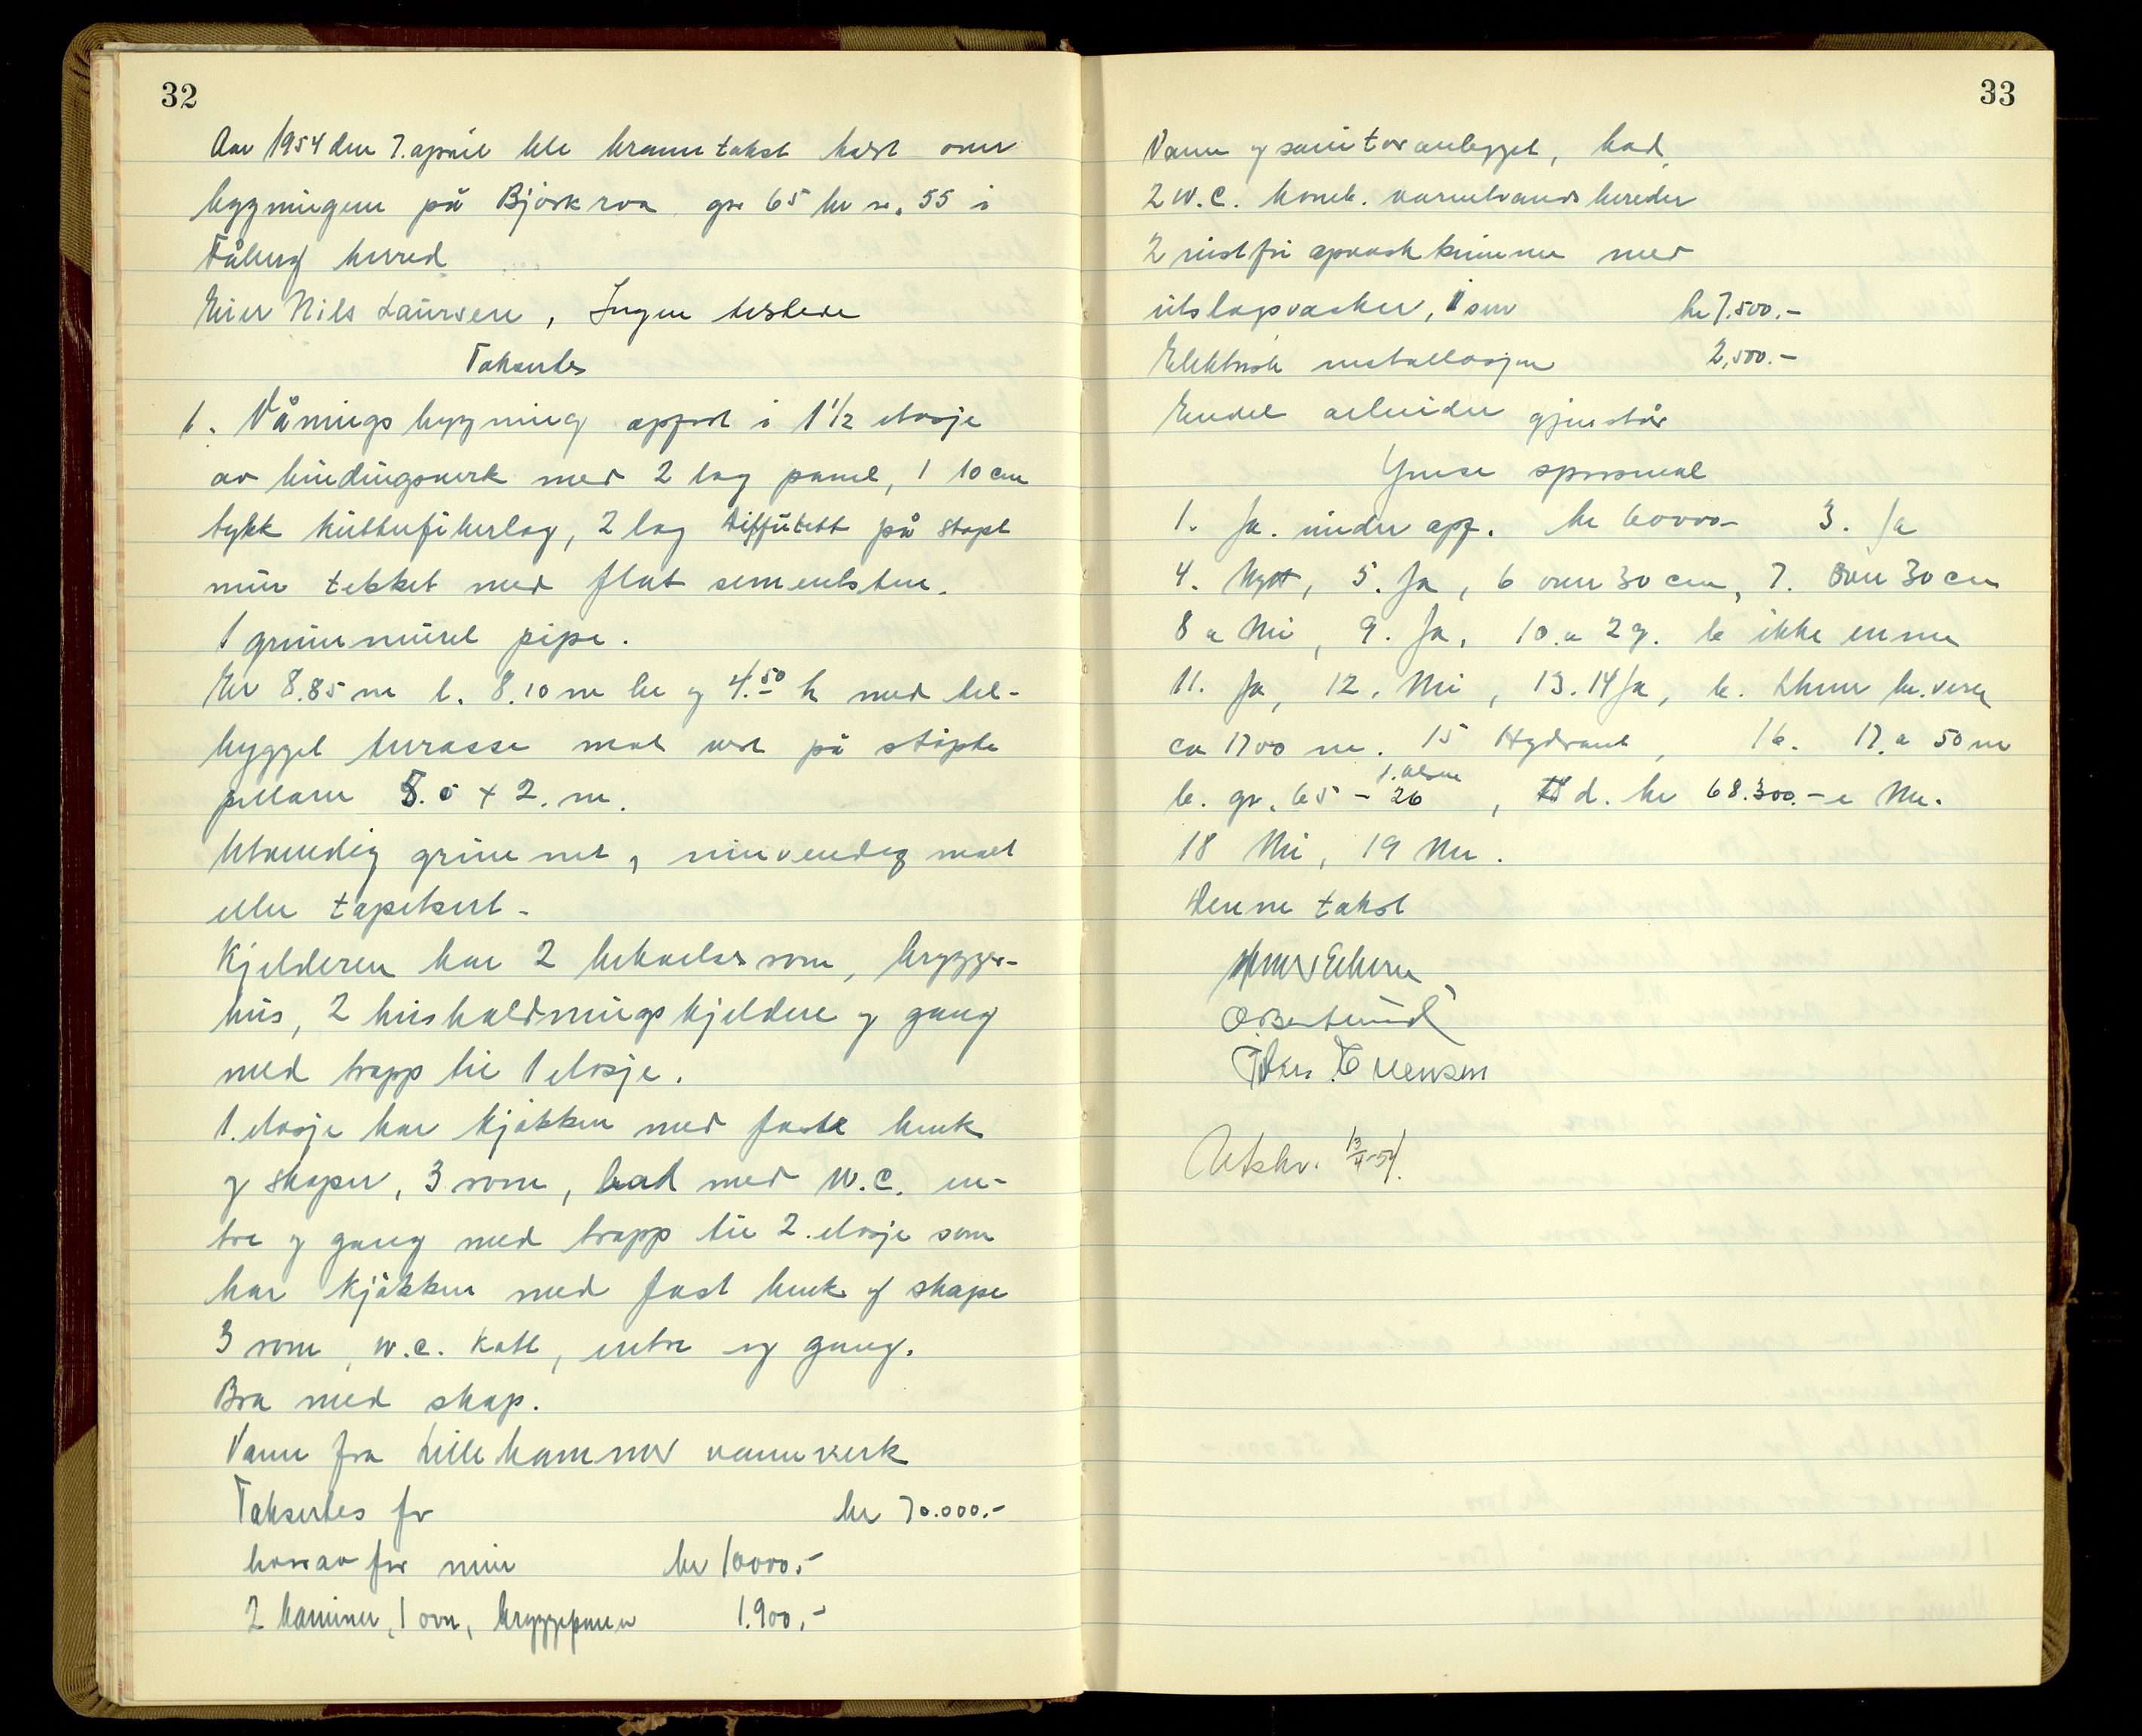 32
Aar 1954 den 7. april ble branntakst holdt over
bygningene på Björkroa gnr 65 br nr. 55 i
Fåberg herred
Eier Nils Laursen, Ingen tilstede
Taksertes
1. Våningsbygning oppfört i 1 1/2 etasje
av bindingsverk med 2 lag panel, 1 10 cm
tykk kutterfiberlag, 2 lag diffutett på stöpt
mur tekket med flat sementsten.
1 grunnmuret pipe.
Er 8.85 m l. 8.10 m br og 4.50 h med til-
bygget terrasse mot vest på stöpte
pillarer 5.5 x 2. m.
Utvendig grunnet, innvendig malt
eller tapetsert.
Kjelderen har 2 beboelsesrom, brygger-
hus, 2 husholdningskjeldere og gang
med trapp til 1 etasje.
1. etasje har kjökken med faste benk
og skaper, 3 rom, bad med W.C. en-
tre og gang med trapp til 2. etasje som
har kjökken med fast benk og skape
3 rom, w.c. kott, entre og gang.
Bra med skap.
Vann fra Lillehammer vannverk
Taksertes for kr 70.000.-
hvorav for mur kr 10000.-
2 kaminer, 1 ovn, bryggepanne 1.900.-
33
Vann og sanitæranlegget, bad,
2 W.C. komb. varmtvandsbereder
2 rustfri opvaskkummer med
utslagsvasker, 1 kr 7.500.-
Elektrisk installasjon 2,500.-
Endel arbeider gjenstår
Ymse spörsmål
1. Ja. under opf. kr 60000- 3. Ja
4. Nytt, 5. Ja, 6 over 30 cm, 7. Over 30 cm
8 a Nei, 9. Ja, 10. a 2 g. b ikke ennu
11. Ja, 12. Nei, 13. 14 Ja, b. Lhmr br. vesen
ca 1700 m. 15 Hydrant, 16. 17. a 50 m
b. gr. 65 - 26, d. kr 68.300.- e Nei.
18 Nei, 19 Nei.
Denne takst
Utskr. 13/4-54.